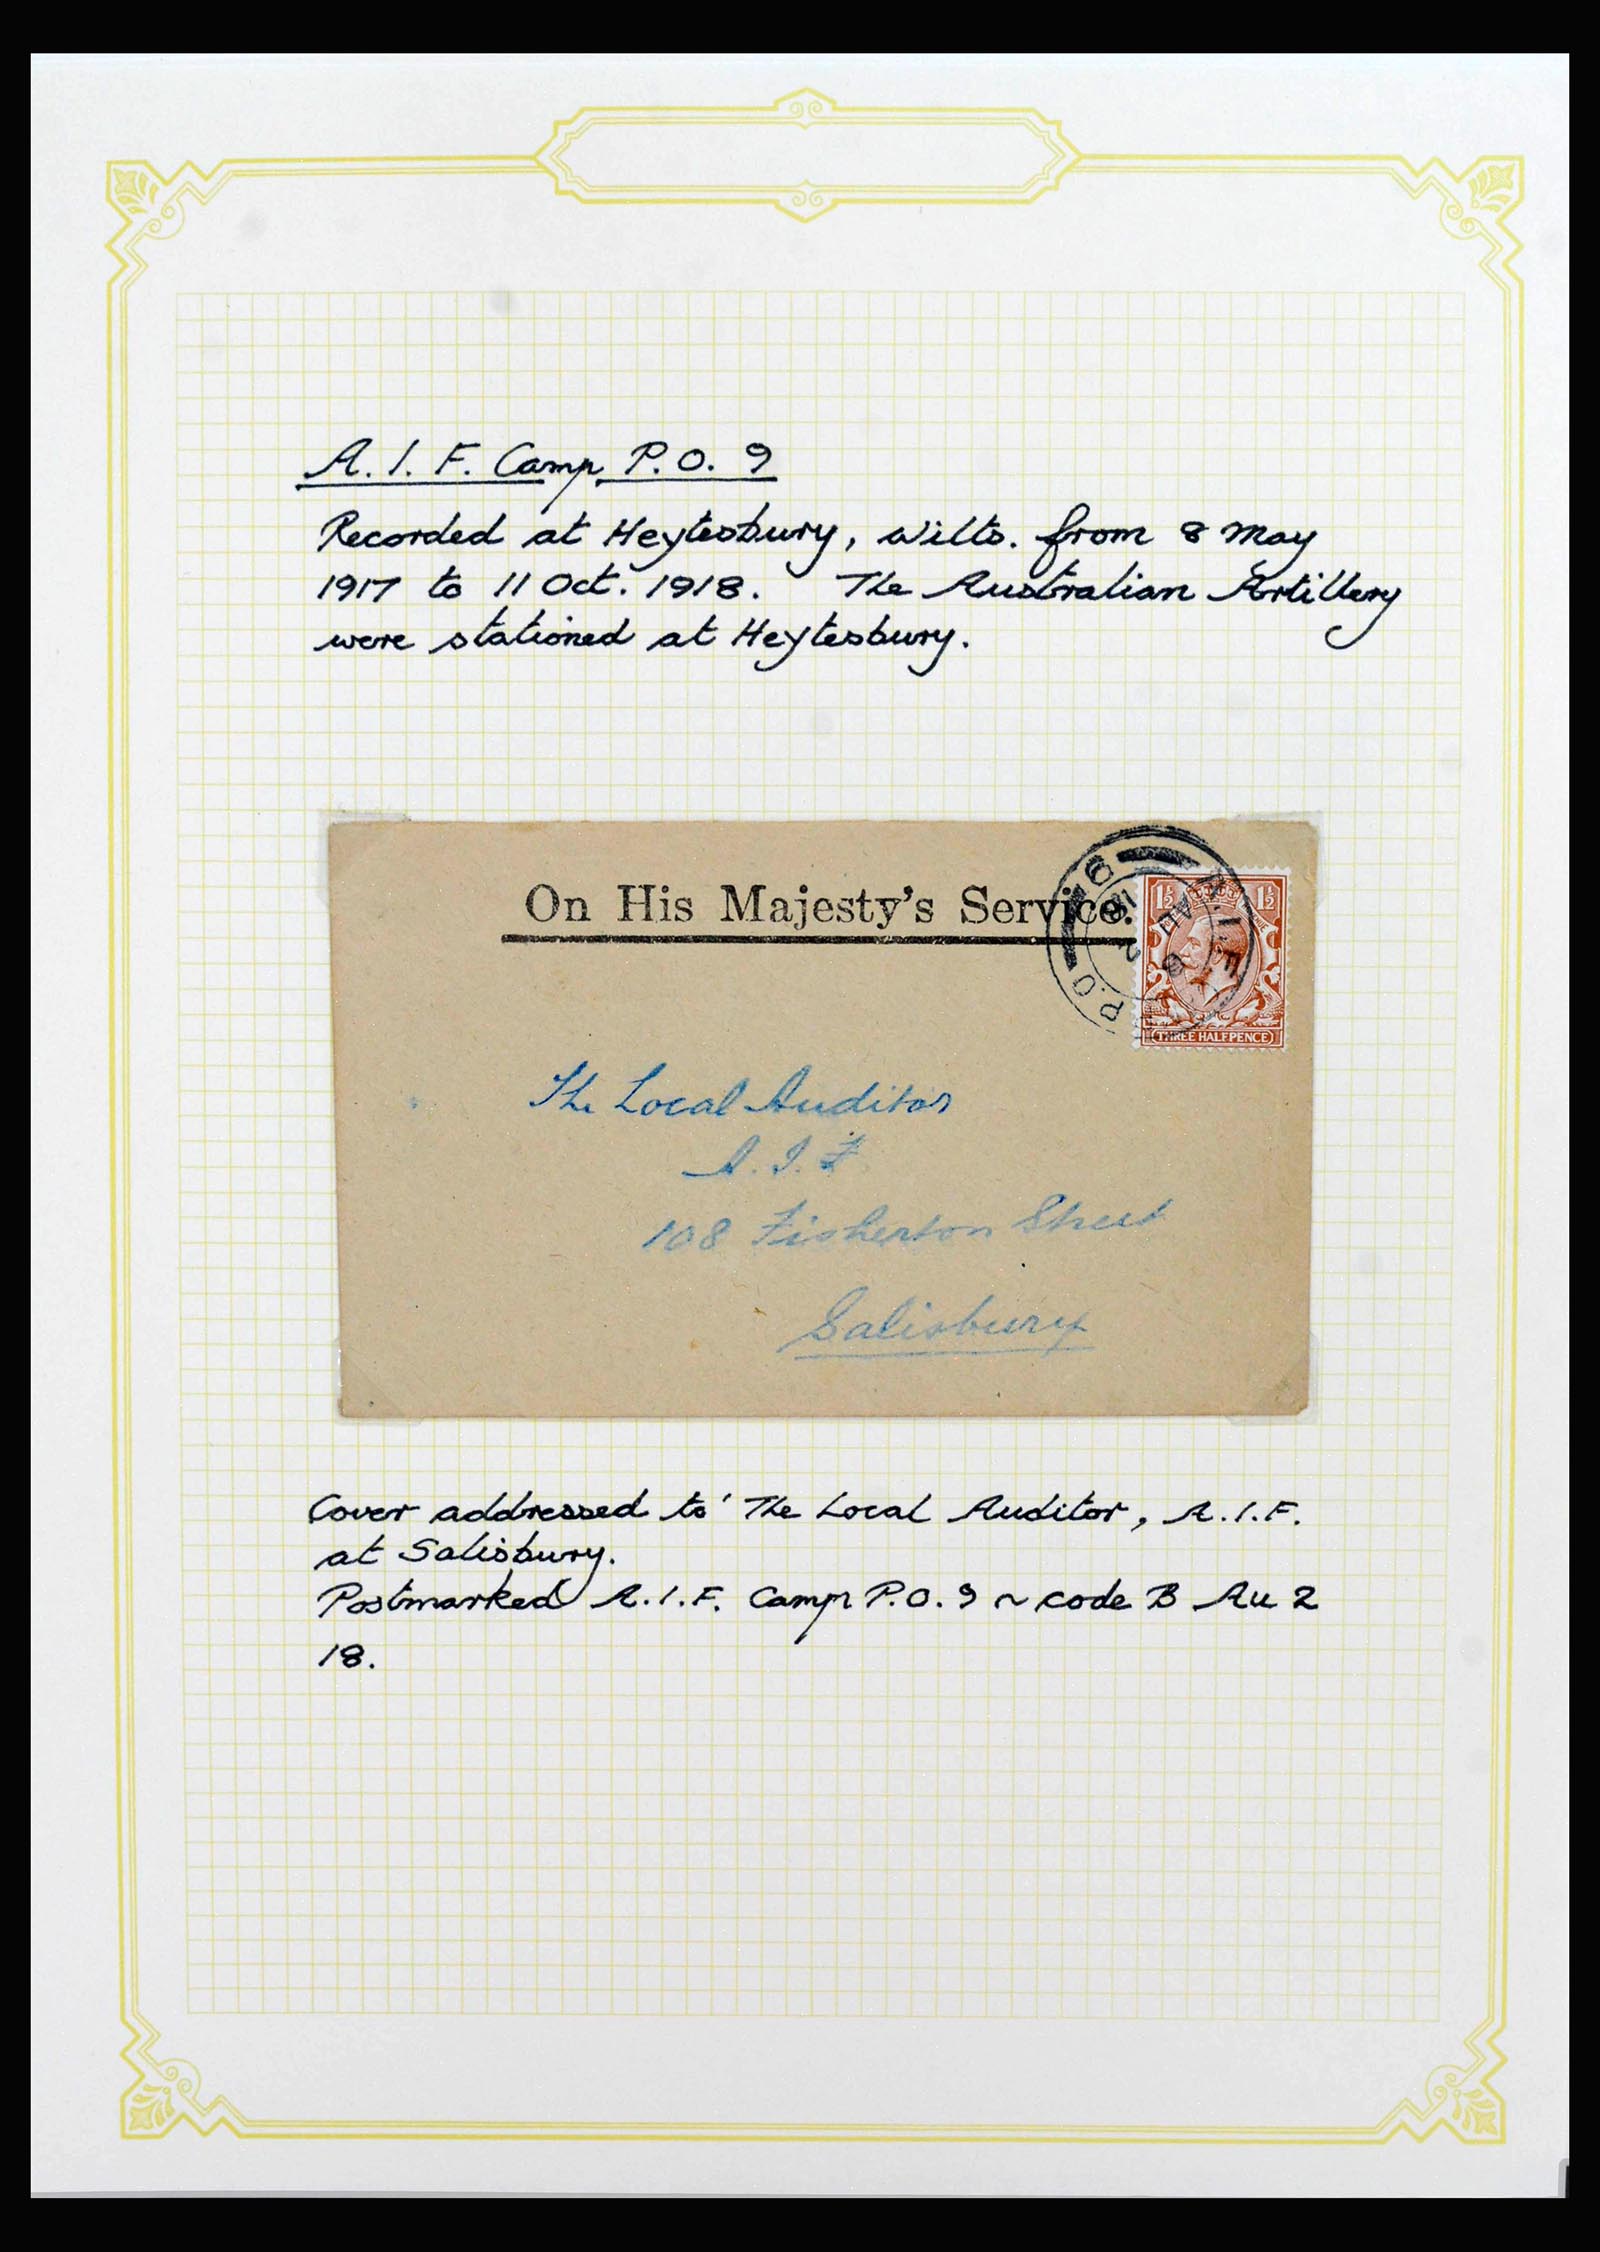 A.I.F. Camp P.O. 9
Recorded at Heytesbury, Wilts. from 8 May
1917 to 11 Oct. 1918. The Australian Artillery
were stationed at Heytesbury.
On His Majesty's Service.
A.I.F. P.O 9
AU 2
18
1½ 1½
THREE HALFPENCE
The Local Auditor
A.I.F
108 Fisherton Street
Salisbury
Cover addressed to 'The Local Auditor, A.I.F.
at Salisbury.
Postmarked A.I.F. Camp P.O. 9 ~ code B Au 2
18.